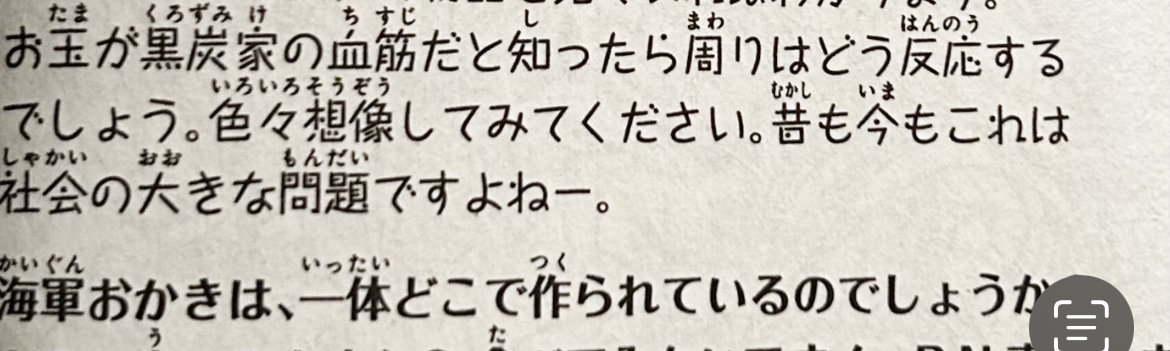 お玉が黒炭家の血筋だと知ったら周りはどう反応する
でしょう。色々想像してみてください。昔も今もこれは
社会の大きな問題ですよねー。
海軍おかきは、一体どこで作られているのでしょうか